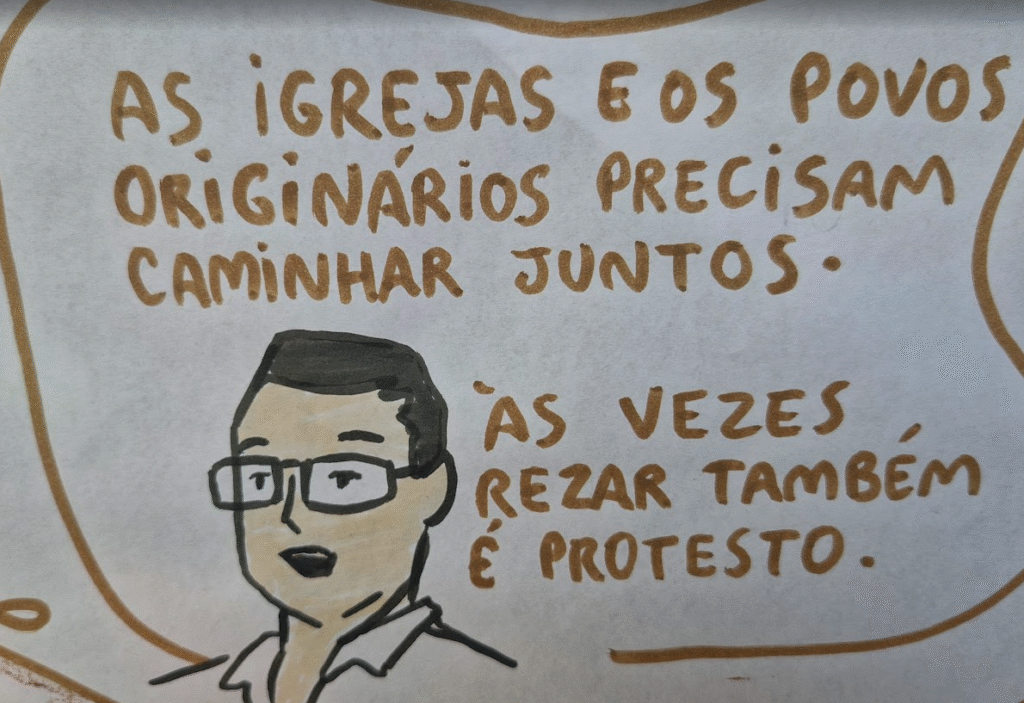 AS IGREJAS E OS POVOS
ORIGINÁRIOS PRECISAM
CAMINHAR JUNTOS.
ÀS VEZES
REZAR TAMBÉM
É PROTESTO.